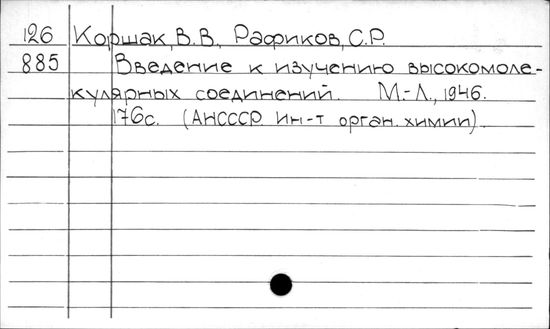 126 Коршак, В.В., Рафиков, С.Р.
885 Введение к изучению высокомоле-
кулярных соединений. М.-Л., 1946.
176с. (АНСССР. Ин-т орган. химии)